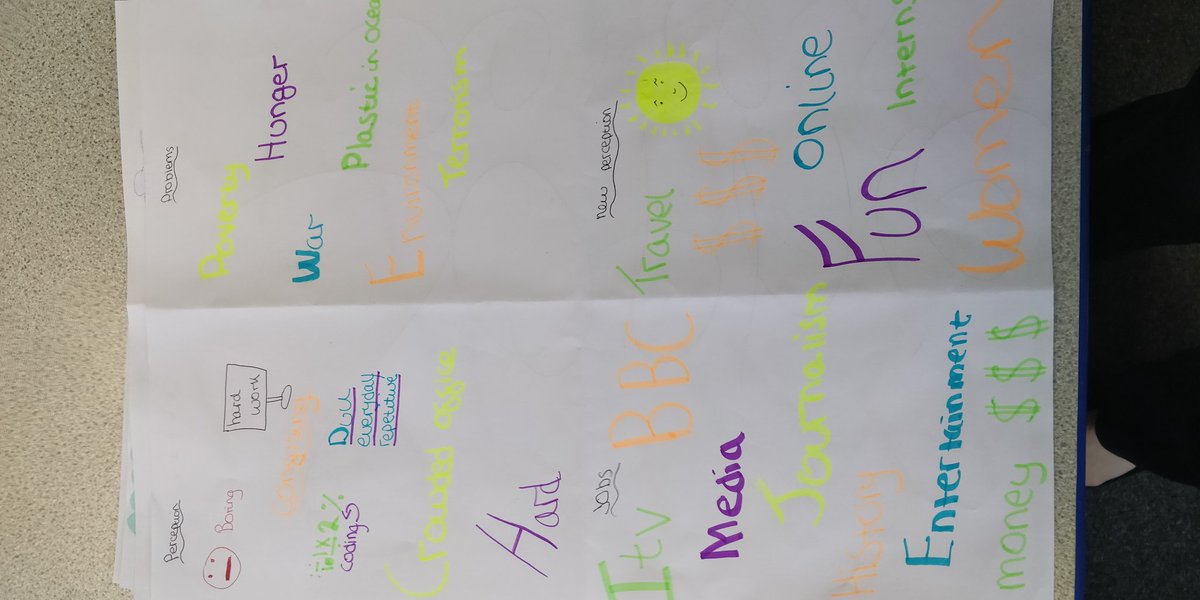 Perception
Boring
hard
work
Dull
everyday
repetitive
codings
Crowded office
Hard
Problems
Poverty
Hunger
War
Plastic in ocea
Environment
Terrorism
Jobs
Itv BBC
Media
Journalism
History
Entertainment
money $$$
New perception
Travel
$$$
Online
Fun
Intern
Women